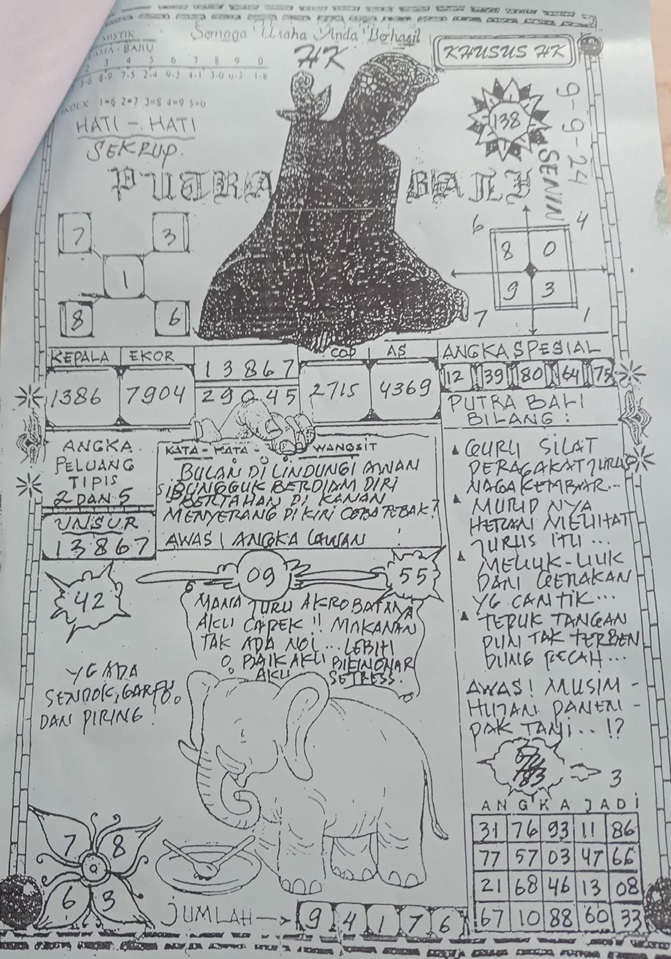 MISTIK
BARU
Semoga Usaha Anda Berhasil
HK
KHUSUS HK
2 3 4 5 6 7 8 9 0
INDEX 1=6 2=7 3=8 4=9 5=0
HATI - HATI
SEKRUP.
138
9-9-24
SENIN
PUTRA BALI
7 3
1
8 6
6 4
8 0
9 3
7 1
KEPALA EKOR
1386 7904
13867
29045
COP AS
2715 4369
ANGKA SPESIAL
12 39 80 64 75
PUTRA BALI
BILANG :
ANGKA
PELUANG
TIPIS
2 DAN 5
UNSUR
13867
KATA - KATA WANGSIT
BULAN DI LINDUNGI AWAN
SIBUNGGUK BERDIAM DIRI
BERTAHAN DI KANAN
MENYERANG DI KIRI COBA TEBAK?
AWAS! ANGKA LAWAN
GURU SILAT
PERAGAKAT JURUS
NAGA KEMBAR...
MURID NYA
HERAN MELIHAT
JURUS ITU...
MELIUK-LIUK
DAN GERAKAN
YG CANTIK...
TEPUK TANGAN
PUN TAK TERBEN
DUNG PECAH...
AWAS! MUSIM -
HUJAN PANEN -
PAK TANI..!?
42
09
55
MANA TURU AKROBATNYA
AKU CAPEK !! MAKANAN
TAK ADA NOI... LEBIH
BAIK AKU
AKU SETRESS.
YG ADA
SENDOK, GARFU,
DAN PIRING!
83
3
ANGKA JADI
31 76 93 11 86
77 57 03 47 66
21 68 46 13 08
67 10 88 60 33
7 8
6 3
JUMLAH
9 4 1 7 6